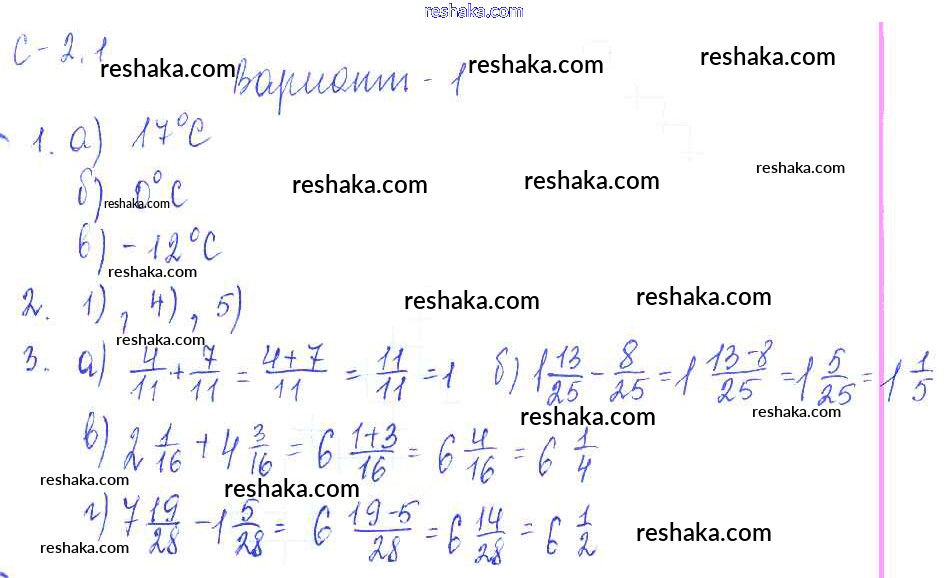 reshaka.com
С-2.1
reshaka.com reshaka.com reshaka.com
Вариант-1
1. а) 17°С
reshaka.com
б) 0°С reshaka.com reshaka.com reshaka.com
в) -12°С
reshaka.com
2. 1), 4), 5) reshaka.com reshaka.com
reshaka.com
3. а) 4/11 + 7/11 = 4+7/11 = 11/11 = 1 б) 1 13/25 - 8/25 = 1 13-8/25 = 1 5/25 = 1 1/5
reshaka.com reshaka.com
в) 2 1/16 + 4 3/16 = 6 1+3/16 = 6 4/16 = 6 1/4
reshaka.com reshaka.com
г) 7 19/28 - 1 5/28 = 6 19-5/28 = 6 14/28 = 6 1/2
reshaka.com reshaka.com